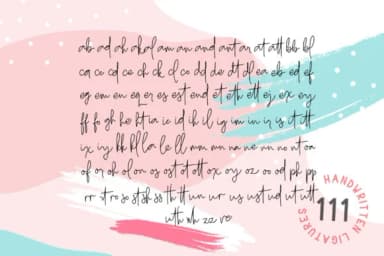 ab ad ah akal am an and ant ar at att bb bl
ca ce cd ce ch ck cl co dd de dt dl ea eb ed ef
eg em en eq er es est end et eth ett ej ex ey
ff fo gh he ht ia ie id ih il ig im in ir is it itt
ix iy kk kl la le ll mm mn na ne nn ne nt oa
of or oh ol on os ost ot ott ox oy oz oo od ph pp
rr st ro so st sh ss th tt un ur us ust ud ut utt
uth wh zz re
111
HANDWRITTEN
LIGATURES